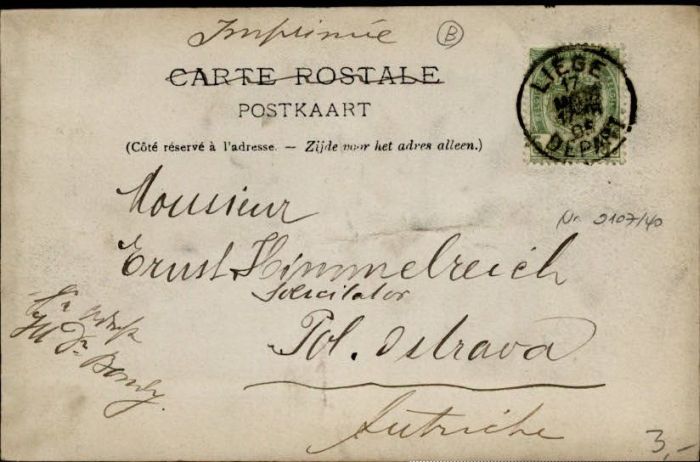 Imprimée
B
CARTE POSTALE
POSTKAART
(Côté réservé à l'adresse. — Zijde voor het adres alleen.)
LIÈGE
17
DEPART
Monsieur
Nr 2107/40
Ernst Himmelreich
Solicitator
Pol. Ostrava
Autriche
3,-